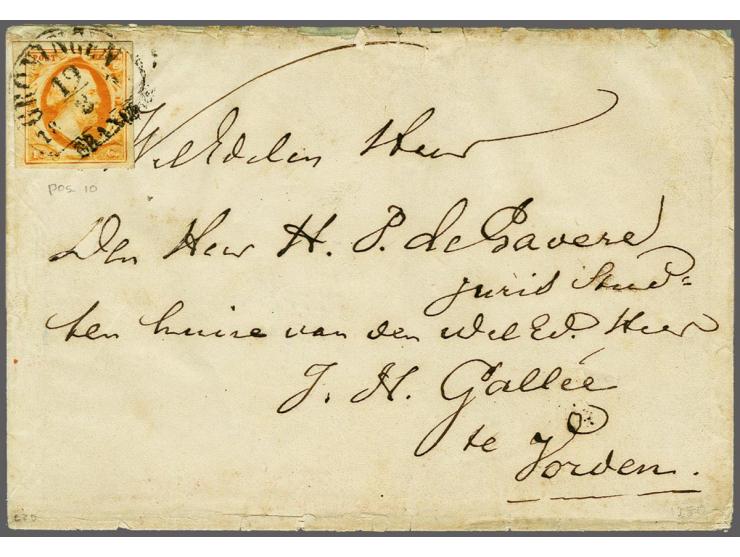 POST
GRONINGEN
19
8
FRANCO
pos 10
WelEdelen Heer
Den Heer H. P. de Gavere
jurid Stud=
ten huize van den WelEd. Heer
J. H. Gallée
te
Vorden.